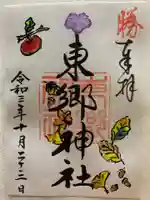 勝
奉拝
東郷神社
令和三年十月二十三日